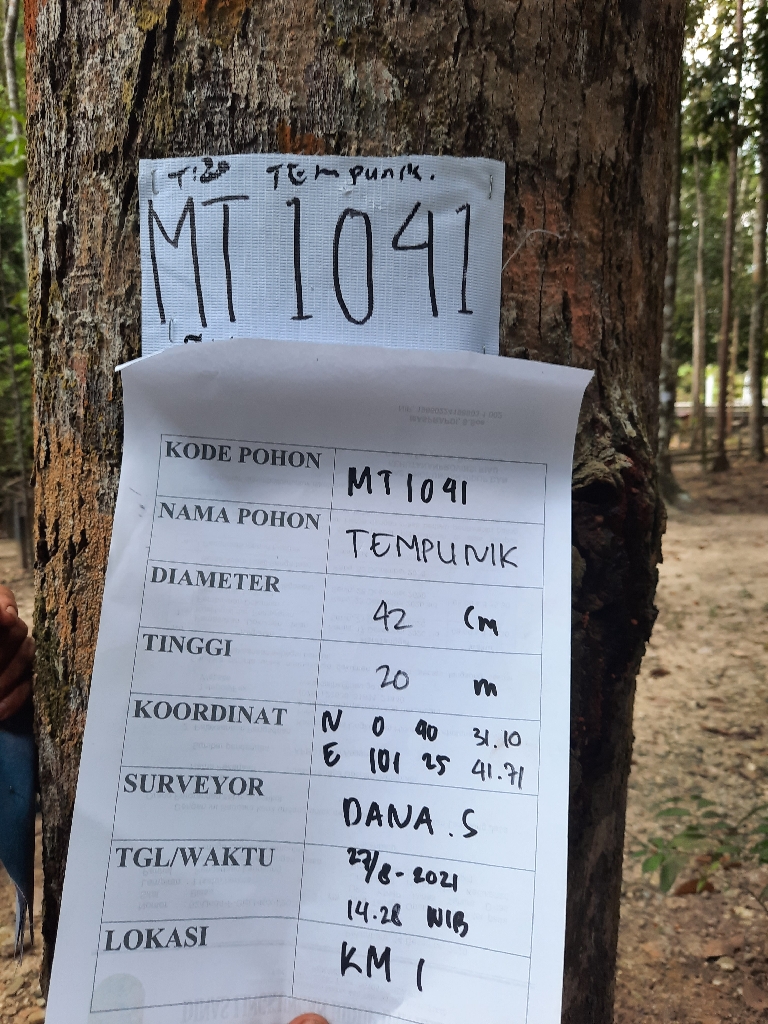 TEMPUNIK.
MT 1041
KODE POHON MT1041
NAMA POHON TEMPUNIK
DIAMETER 42 Cm
TINGGI 20 m
KOORDINAT N 0 40 31.10
E 101 25 41.71
SURVEYOR DANA.S
TGL/WAKTU 27/8-2021
14.28 WIB
LOKASI KM 1